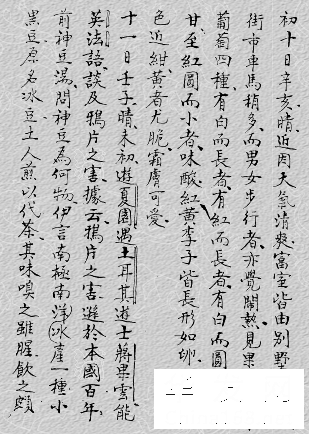 初十日辛亥晴近因天氣清爽富室皆由別墅
街市車馬稍多而男女步行者亦覺鬧熱見果
葡萄四種有白而長者有紅而長者有白而圓
甘至紅圓而小者味酸紅黃李子皆長形如卵
色近紺黃者尤脆霜膚可愛
十一日壬子晴未初遊夏園遇土耳其遊士蔣果雲能
英法語談及鴉片之害據云鴉片之害遊於本國百年
前神豆湯問神豆為何物伊言南極南洋冰產一種小
黑豆原名冰豆土人煎以代茶其味嗅之雖腥飲之頗